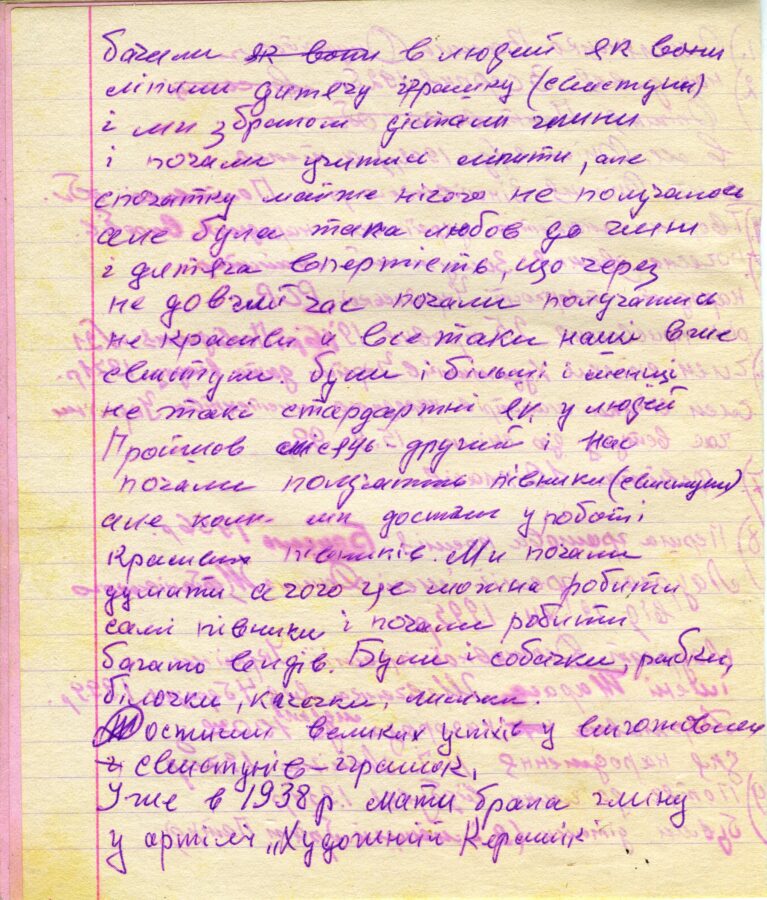 бачили як вони в людей як вони
ліпили дитячу іграшку (свистуни)
і ми з братом дістали глини
і почали учитися ліпити, але
спочатку майже нічого не получалось
але була така любов до глини
і дитяча впертість, що через
не довгий час почали получатись
не красиві а все таки наші вже
свистуни. були і більші і менці
не такі стардартні як у людей
Пройшов місяць другий і нас
почали получатть півники (свистуни)
але коли ми достигли у роботі
красивих півників. Ми почали
думати а чого це можна робити
самі півники і почали робити
багато видів. Були і собачки, рибки,
білочки, качечки,
Достигли великих успіхів у виготовлен
і свистунів-іграшок,
Уже в 1938 р мати брала глину
у артілі „Художній Керамік